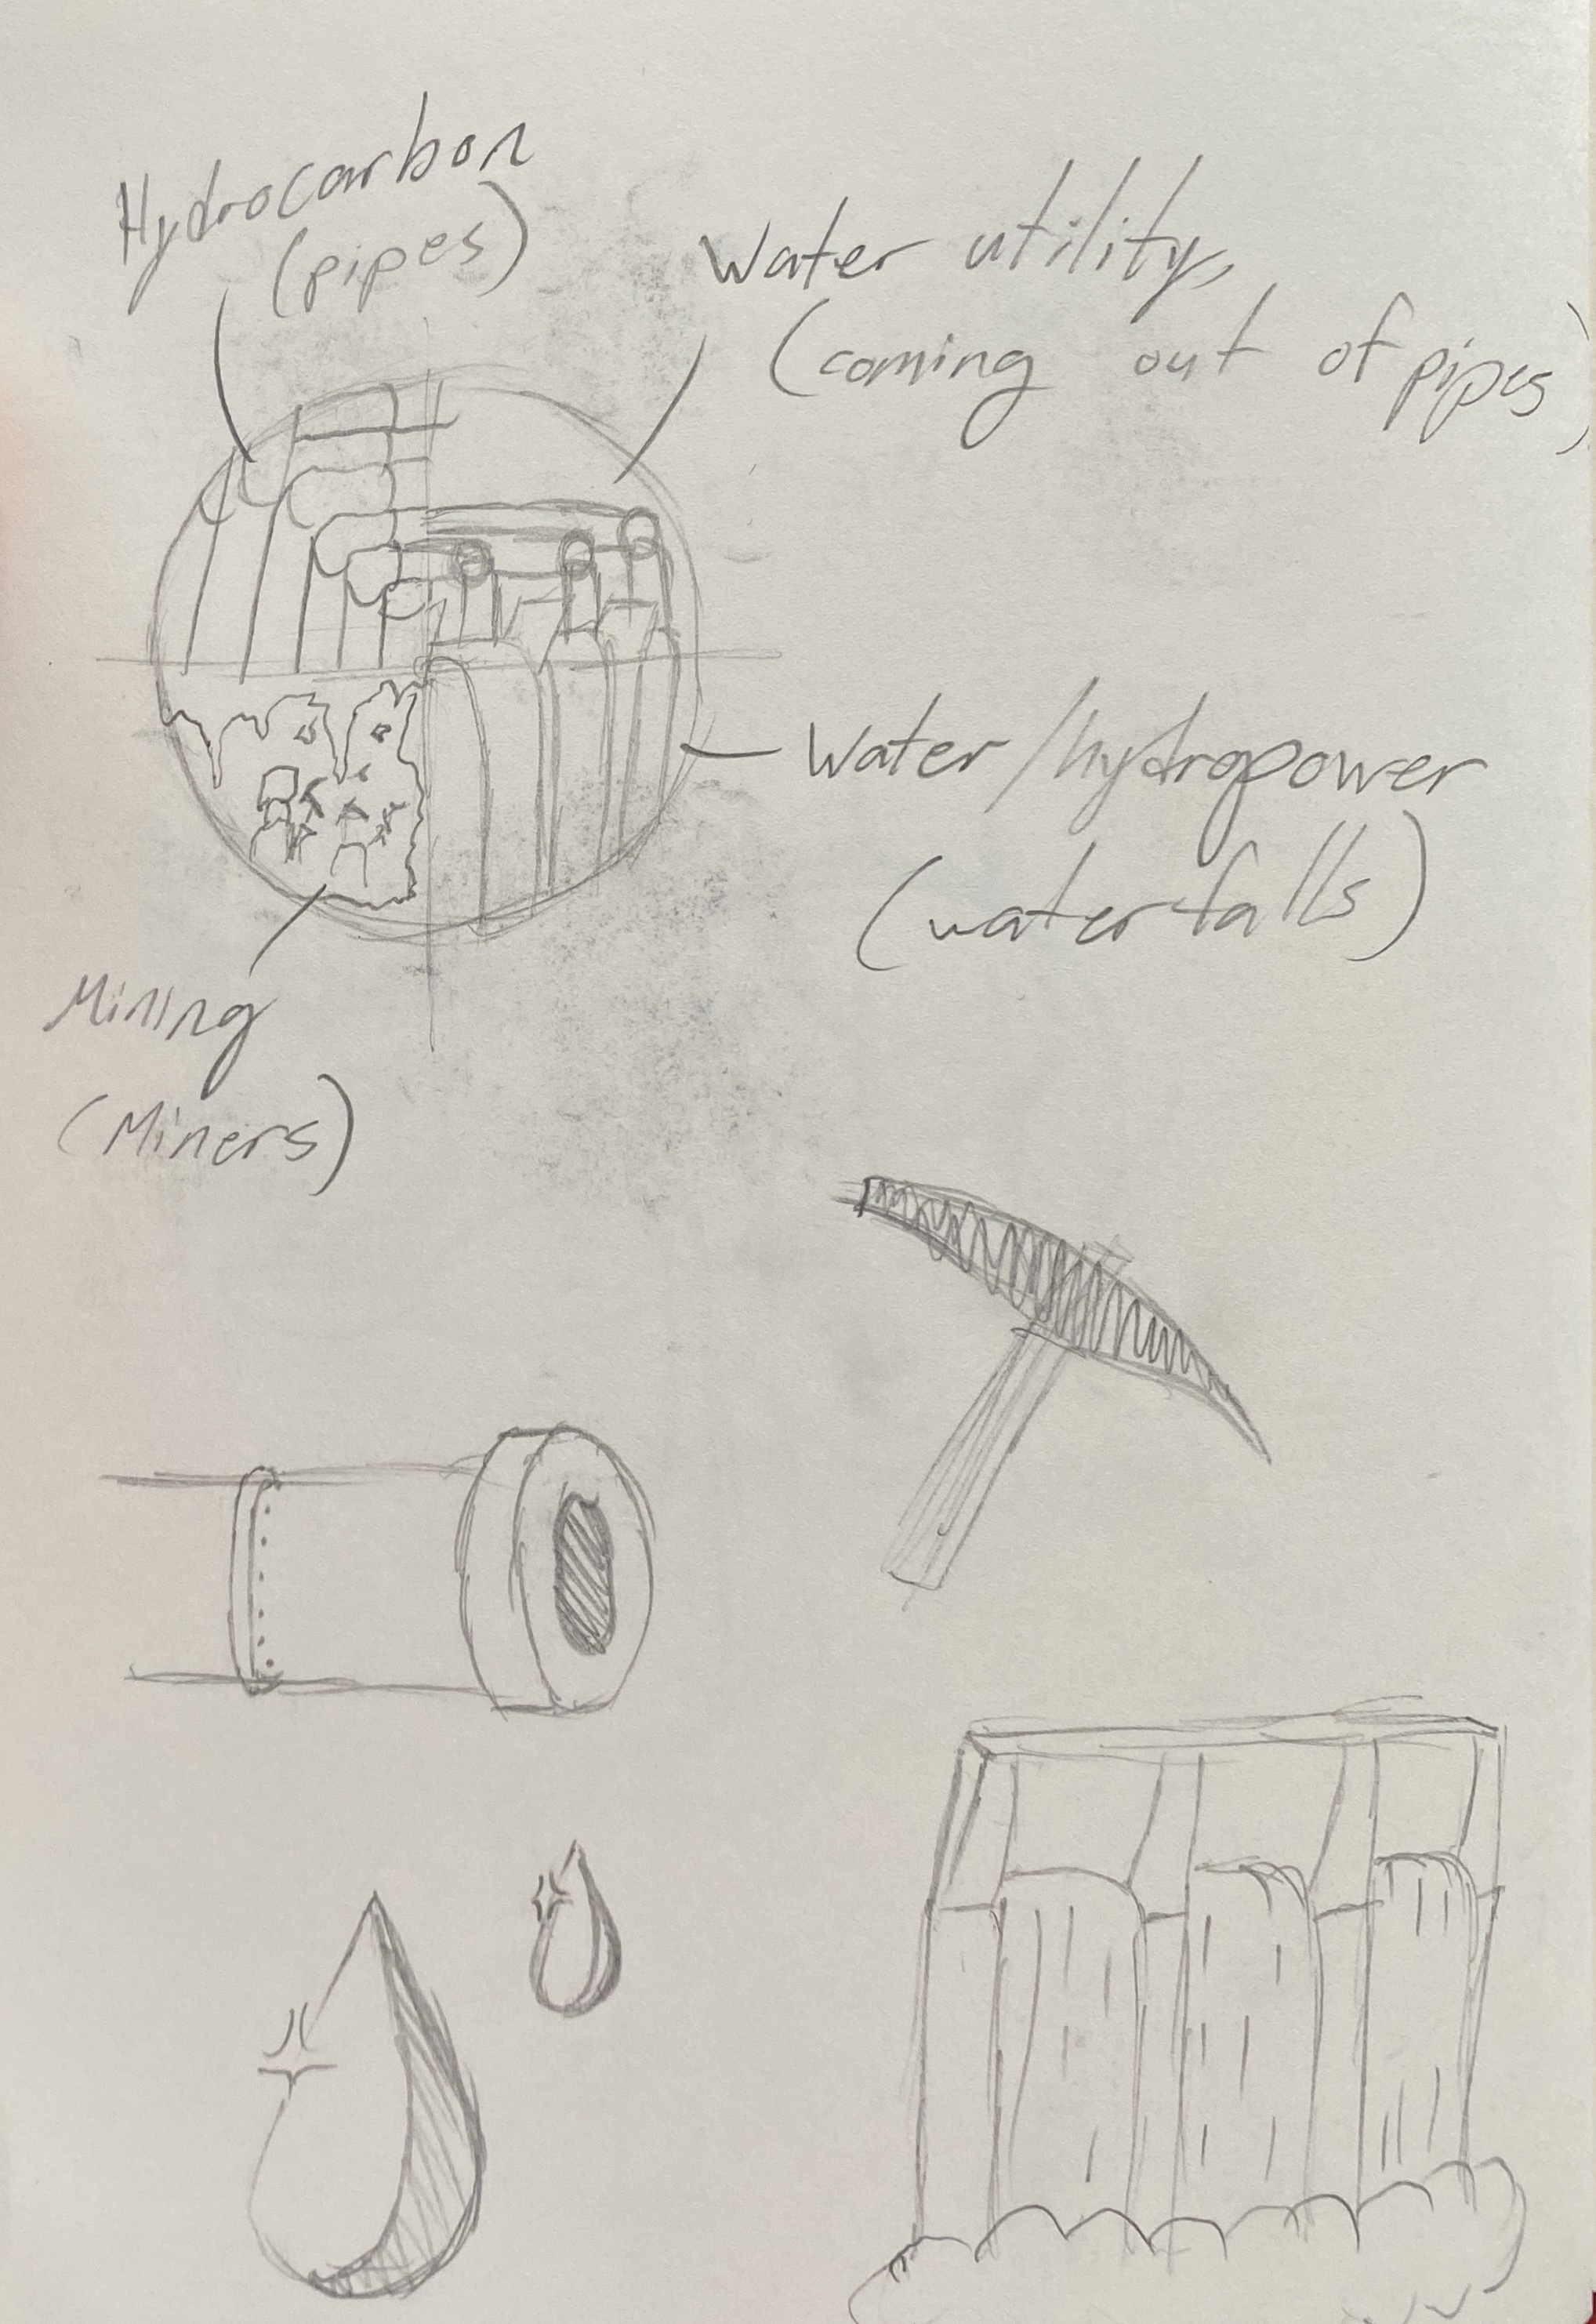 Hydrocarbon
(pipes)
Water utility,
(coming out of pipes)
Water/hydropower
(waterfalls)
Mining
(Miners)